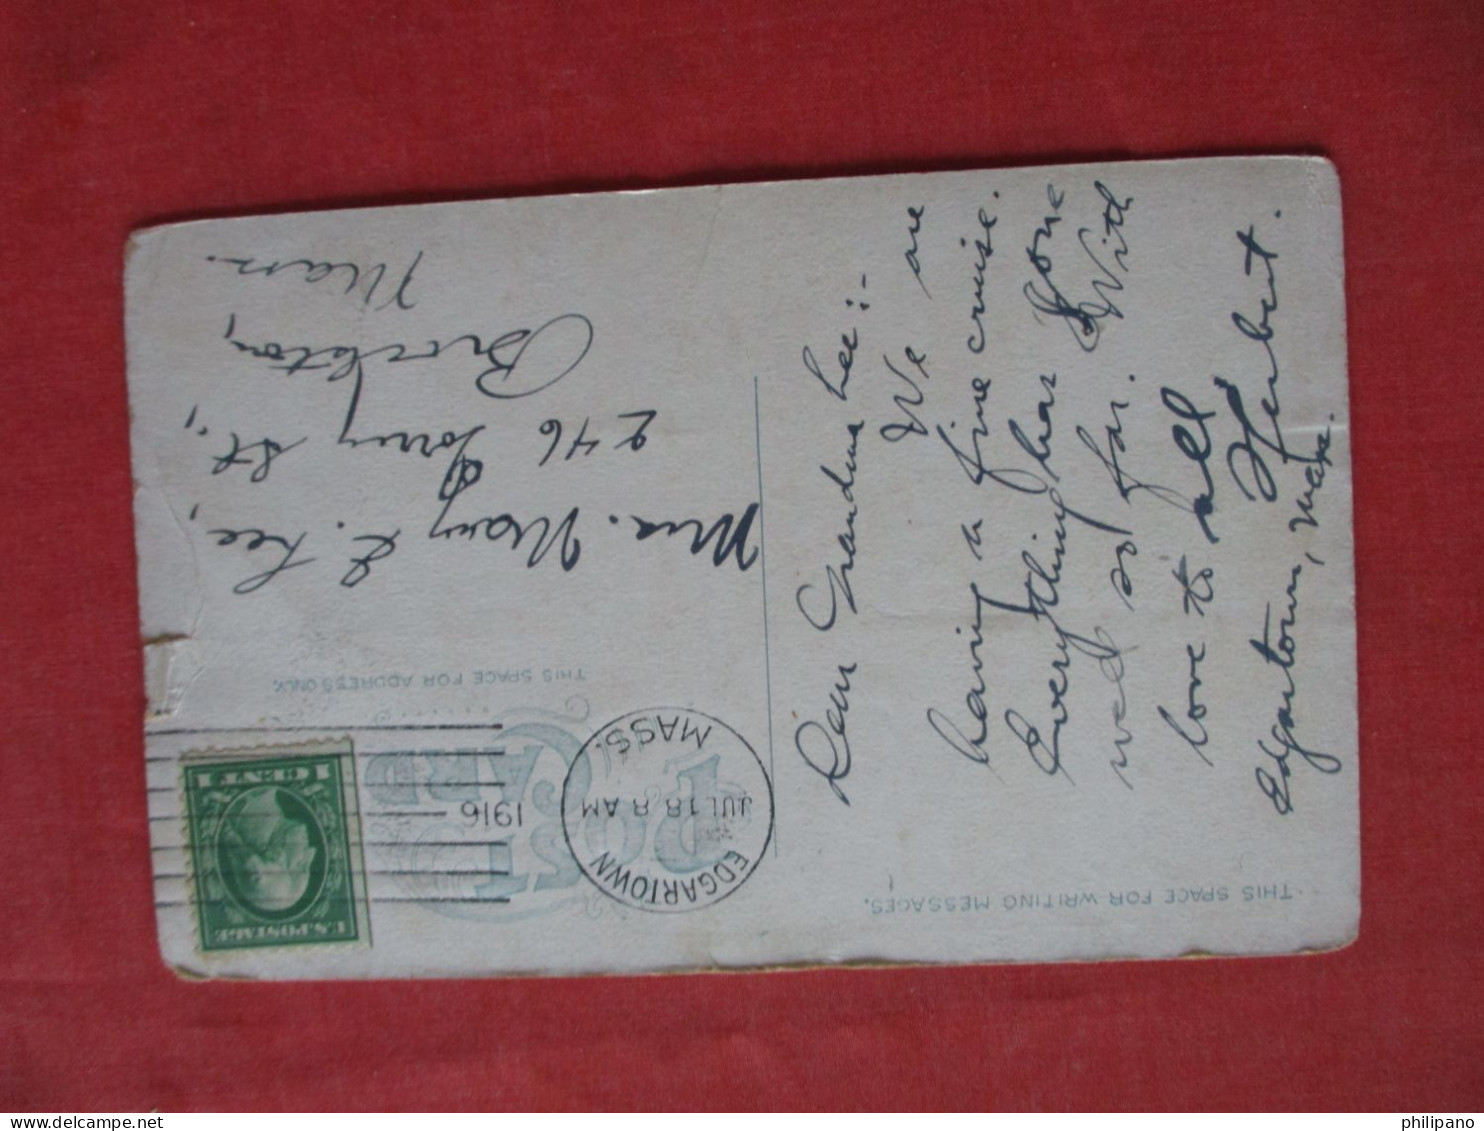 THIS SPACE FOR WRITING MESSAGES.
Dear Grandma Lee:-
We are
having a fine cruise.
Everything has gone
well so far. With
love to all
Herbert.
Edgartown, Mass.
POST CARD
THIS SPACE FOR ADDRESS ONLY.
EDGARTOWN
JUL 18 8 AM
1916
MASS.
U.S. POSTAGE
1 CENT 1
Mrs. Mary E. Lee,
246 Torrey St.,
Brockton,
Mass.
philipano